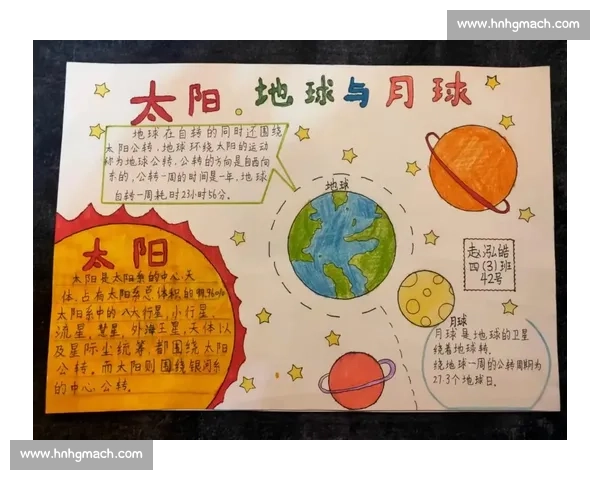 www.hnhgmach.com
太阳、地球与月球
地球在自转的同时还围绕
太阳公转。地球环绕太阳的运动
称为地球公转。公转的方向是自西向
东的,公转一周的时间是一年。地球
自转一周耗时23小时56分。
地球
太阳
太阳是太阳系的中心天
体,占有太阳系总体积的99.96%
太阳系中的八大行星,小行星,
流星,彗星,外海王星,天体以
及星际尘统等,都围绕太阳
公转。而太阳则围绕银河系
的中心公转。
赵泓皓
四(3)班
42号
月球
月球是地球的卫星
绕着地球转。
绕地球一周的公转周期为
27.3个地球日。
www.hnhgmach.com